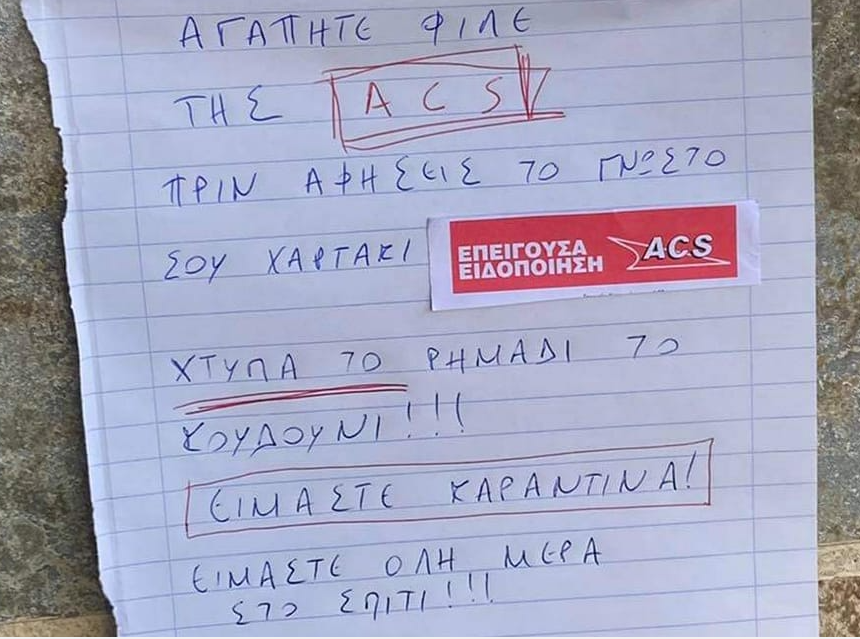 ΑΓΑΠΗΤΕ ΦΙΛΕ
ΤΗΣ ACS
ΠΡΙΝ ΑΦΗΣΕΙΣ ΤΟ ΓΝΩΣΤΟ
ΣΟΥ ΧΑΡΤΑΚΙ
ΕΠΕΙΓΟΥΣΑ
ΕΙΔΟΠΟΙΗΣΗ
ACS
ΧΤΥΠΑ ΤΟ ΡΗΜΑΔΙ ΤΟ
ΚΟΥΔΟΥΝΙ!!!
ΕΙΜΑΣΤΕ ΚΑΡΑΝΤΙΝΑ!
ΕΙΜΑΣΤΕ ΟΛΗ ΜΕΡΑ
ΣΤΟ ΣΠΙΤΙ!!!